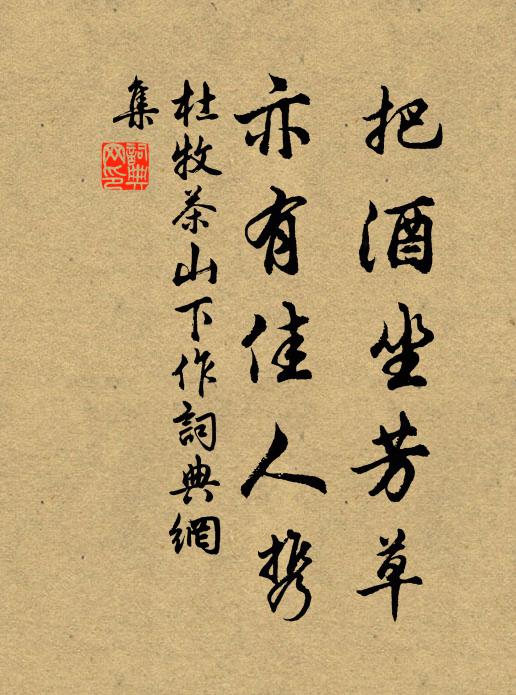 把酒坐芳草
亦有佳人携
杜牧茶山下作詞典網
集
詞典网印